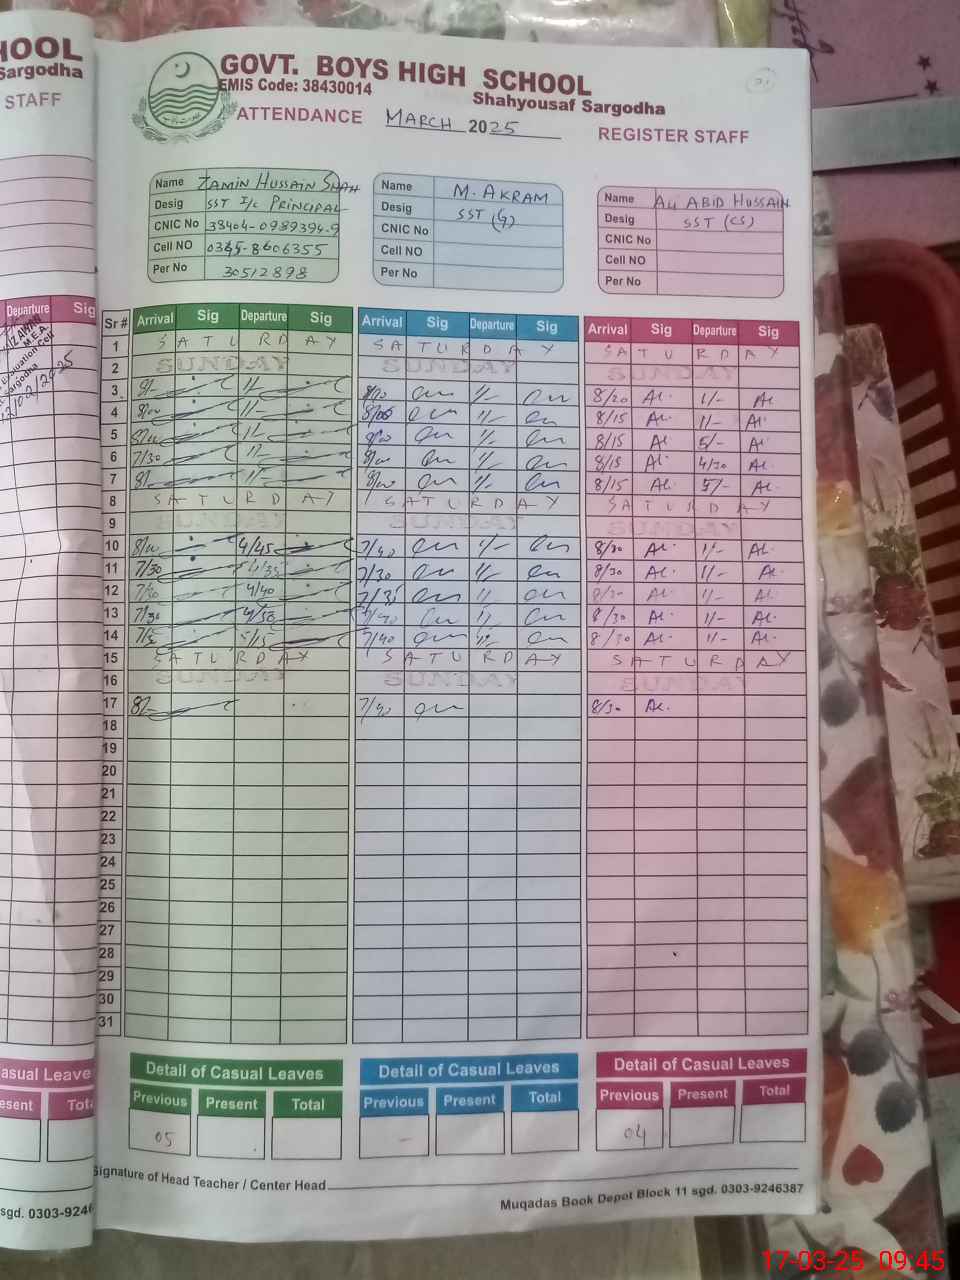 HOOL
Sargodha
STAFF
GOVT. BOYS HIGH SCHOOL
EMIS Code: 38430014
Shahyousaf Sargodha
ATTENDANCE MARCH 2025 REGISTER STAFF
Name ZAMIN HUSSAIN SHAH
Desig SST I/C PRINCIPAL
CNIC No 38404-0989394-9
Cell NO 0345-8606355
Per No 30512898
Name M. AKRAM
Desig SST (G)
CNIC No
Cell NO
Per No
Name ALI ABID HUSSAIN
Desig SST (CS)
CNIC No
Cell NO
Per No
Departure Sig
Sr # Arrival Sig Departure Sig Arrival Sig Departure Sig Arrival Sig Departure Sig
1 SATURDAY SATURDAY SATURDAY
2 SUNDAY SUNDAY SUNDAY
3 8/- 1/- 8/00 1/- 8/20 1/- Al
4 8/00 1/- 8/00 1/- 8/15 Al. 1/- Al.
5 8/00 1/- 8/00 1/- 8/15 Al 5/- Al
6 7/30 1/- 8/00 1/- 8/15 Al. 4/30 Al.
7 8/- 1/- 8/00 1/- 8/15 Al. 5/- Al.
8 SATURDAY SATURDAY SATURDAY
9 SUNDAY SUNDAY SUNDAY
10 8/00 4/45 7/40 1/- 8/30 Al. 1/- Al.
11 7/30 7/30 1/- 8/30 Al. 1/- Al.
12 4/40 7/35 1/- Al. 1/- Al.
13 7/30 4/50 7/40 1/- 8/30 Al. 1/- Al.
14 7/40 8/30 Al. 1/- Al.
15 SATURDAY SATURDAY SATURDAY
16 SUNDAY SUNDAY SUNDAY
17 8/- 7/40 8/30 Al.
18
19
20
21
22
23
24
25
26
27
28
29
30
31
asual Leave
esent Tota
Detail of Casual Leaves Detail of Casual Leaves Detail of Casual Leaves
Previous Present Total Previous Present Total Previous Present Total
05 - 04
Signature of Head Teacher / Center Head
sgd. 0303-9246
Muqadas Book Depot Block 11 sgd. 0303-9246387
17-03-25 09:45